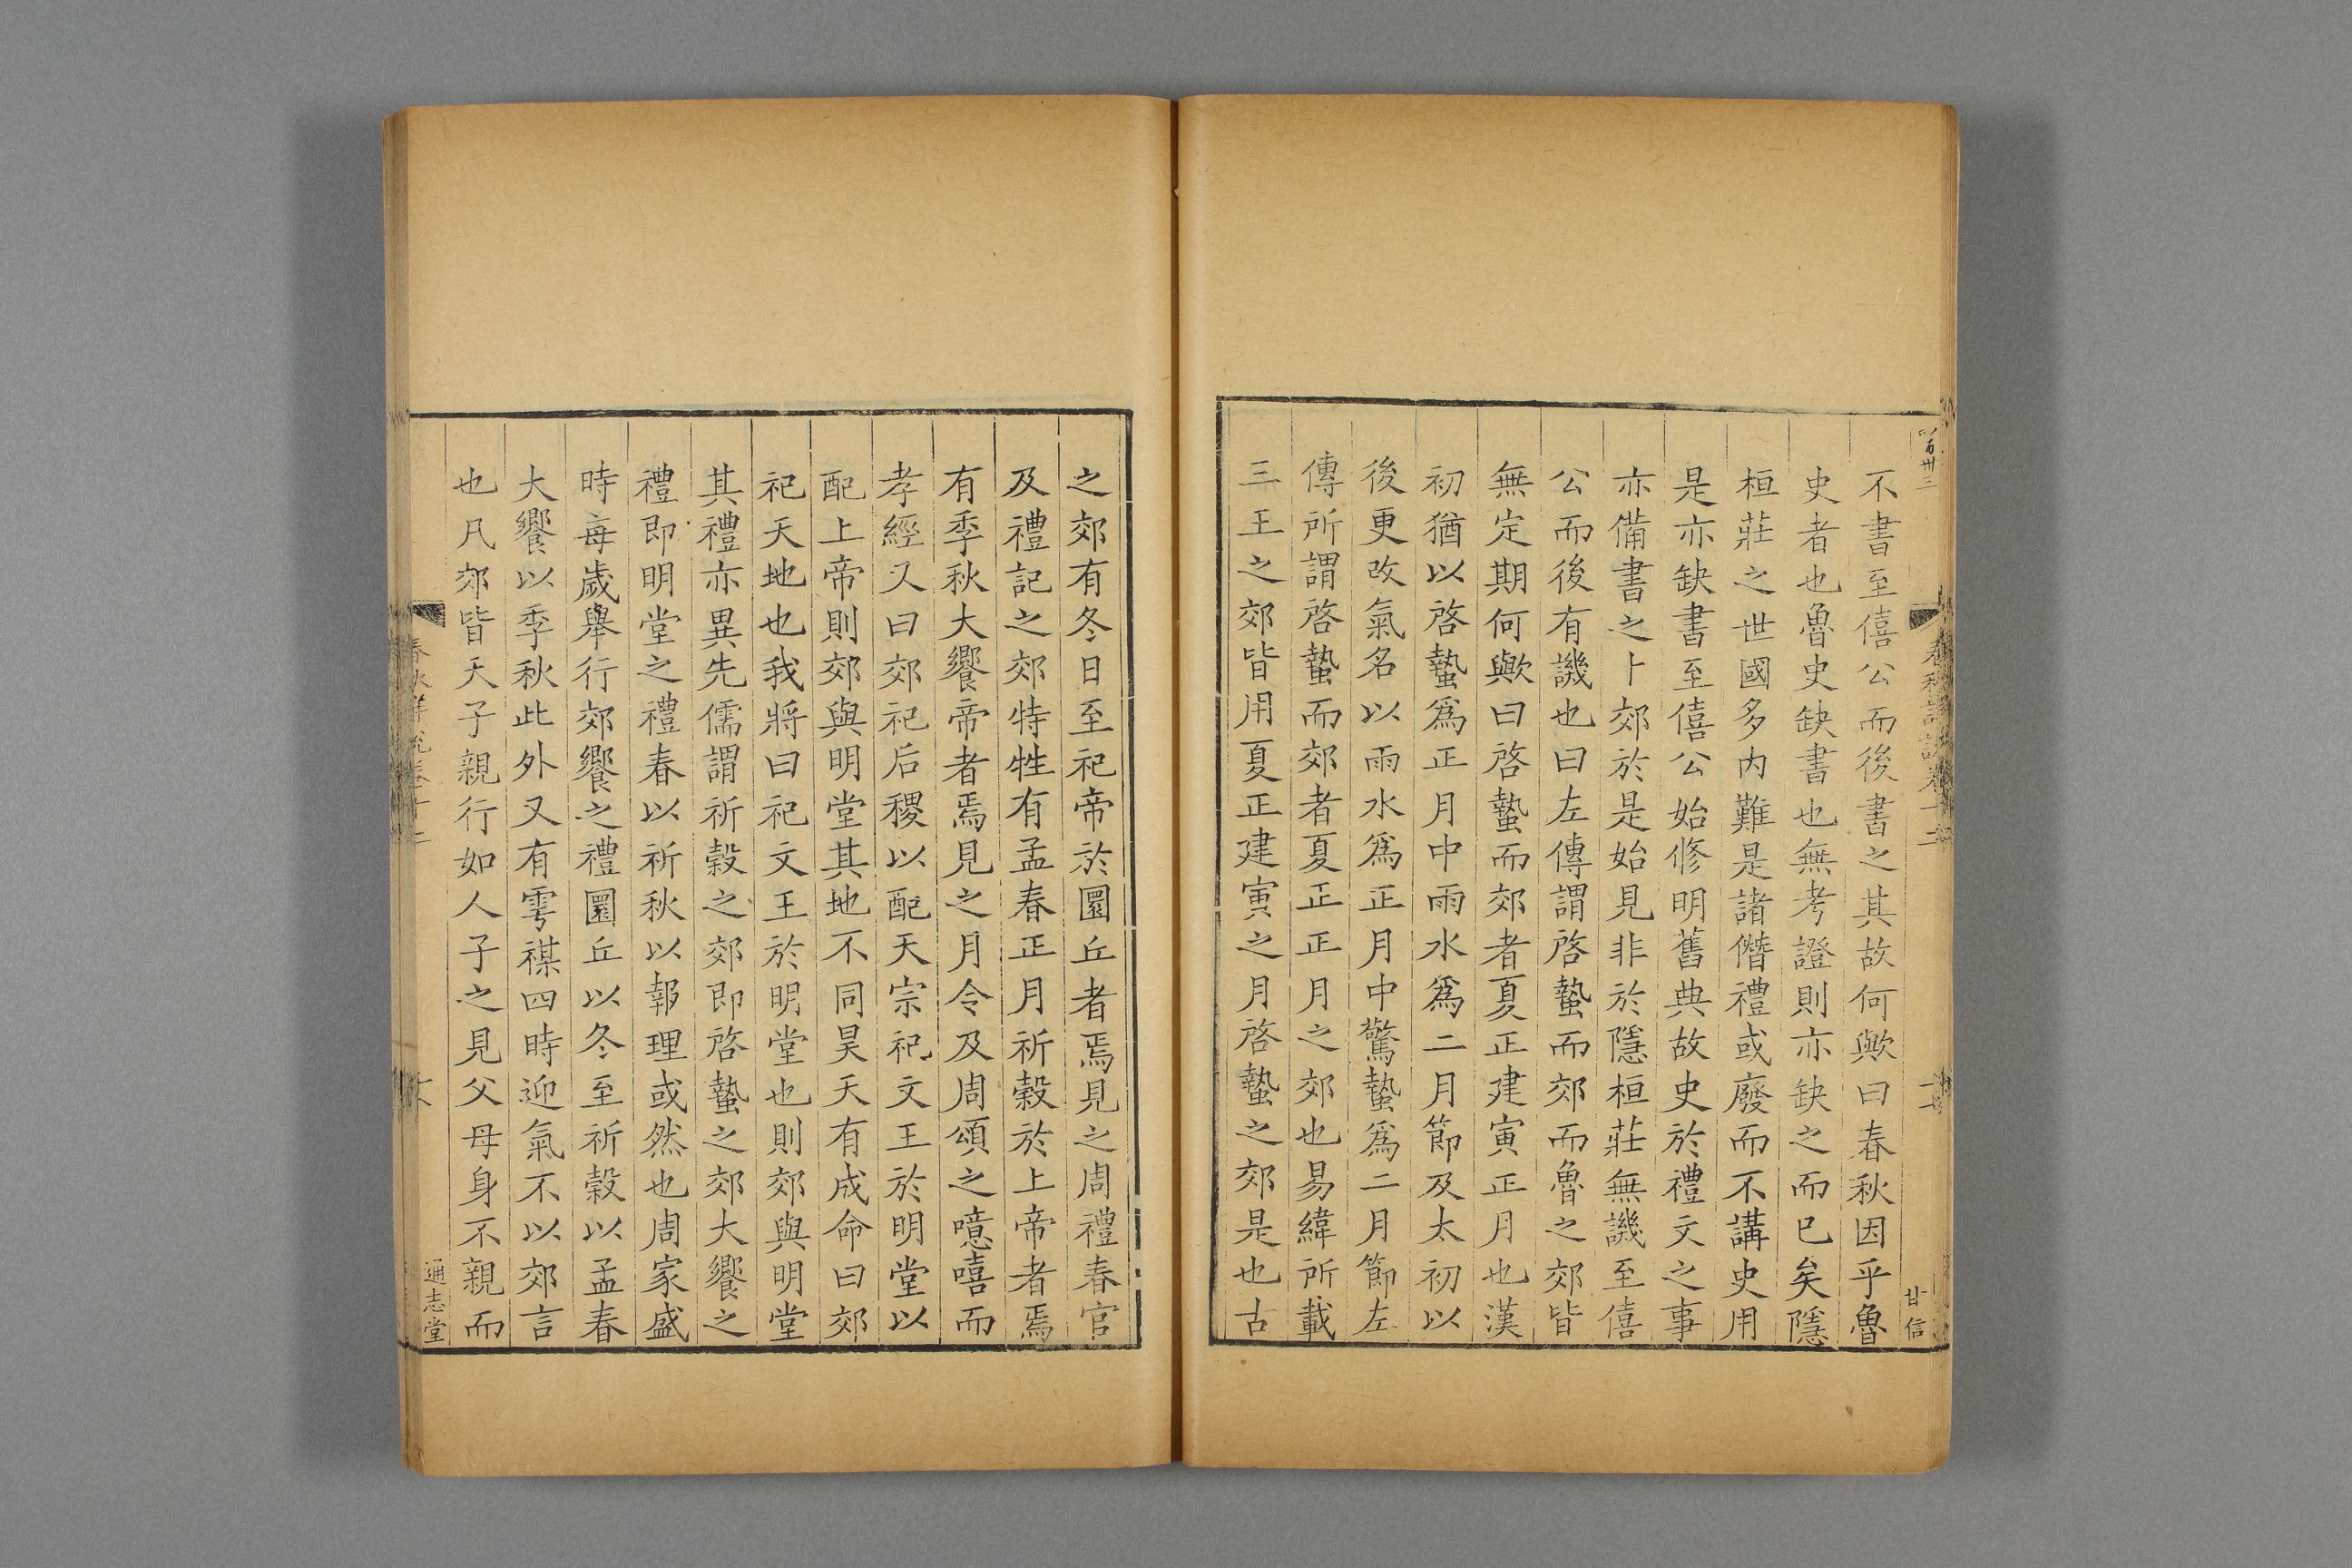 不書至僖公而後書之其故何歟曰春秋因乎魯
史者也魯史缺書也無考證則亦缺之而已矣隱
桓莊之世國多内難是諸僭禮或廢而不講史用
是亦缺書至僖公始修明舊典故史於禮文之事
亦備書之卜郊於是始見非於隱桓莊無譏至僖
公而後有譏也曰左傳謂啓蟄而郊而魯之郊皆
無定期何歟曰啓蟄而郊者夏正建寅正月也漢
初猶以啓蟄爲正月中雨水爲二月節及太初以
後更改氣名以雨水爲正月中驚蟄爲二月節左
傳所謂啓蟄而郊者夏正正月之郊也易緯所載
三王之郊皆用夏正建寅之月啓蟄之郊是也古
甘信
之郊有冬日至祀帝於圜丘者焉見之周禮春官
及禮記之郊特牲有孟春正月祈穀於上帝者焉
有季秋大饗帝者焉見之月令及周頌之噫嘻而
孝經又曰郊祀后稷以配天宗祀文王於明堂以
配上帝則郊與明堂其地不同昊天有成命曰郊
祀天地也我將曰祀文王於明堂也則郊與明堂
其禮亦異先儒謂祈穀之郊即啓蟄之郊大饗之
禮即明堂之禮春以祈秋以報理或然也周家盛
時每歲舉行郊饗之禮圜丘以冬至祈穀以孟春
大饗以季秋此外又有雩禖四時迎氣不以郊言
也凡郊皆天子親行如人子之見父母身不親而
通志堂